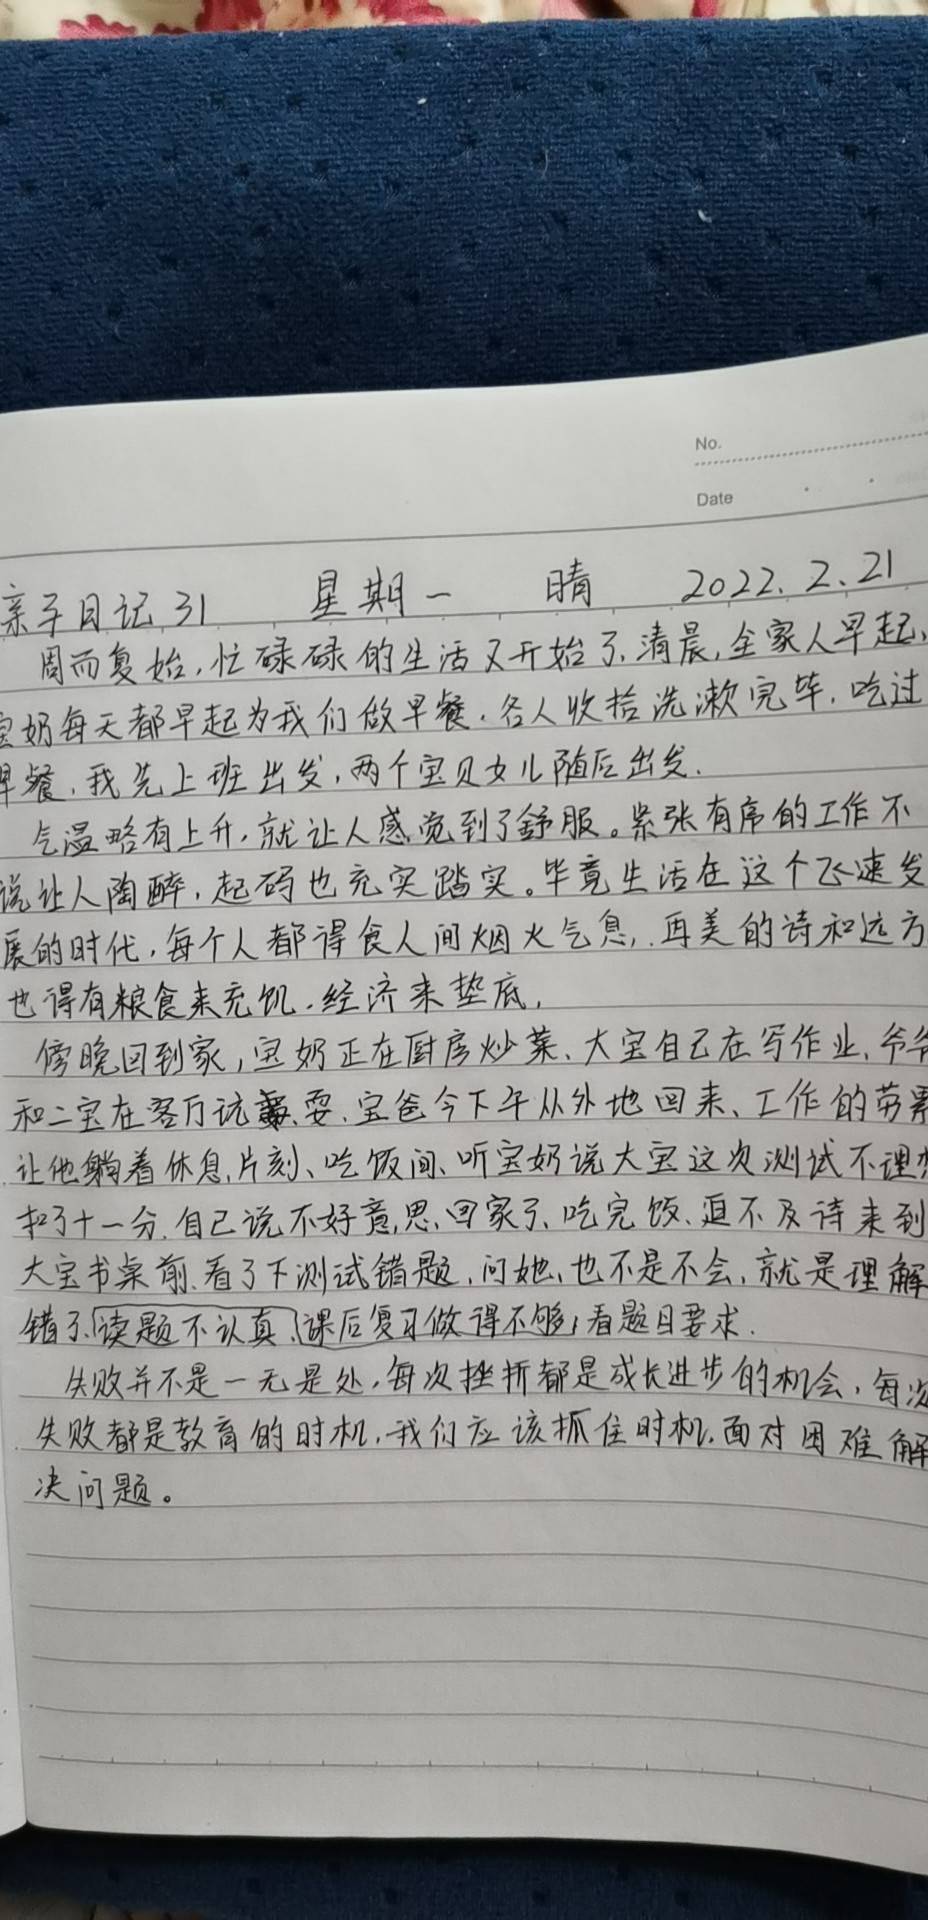 No.
Date
亲子日记31 星期一 晴 2022.2.21
周而复始,忙碌碌的生活又开始了.清晨,全家人早起,
宝奶每天都早起为我们做早餐.各人收拾洗漱完毕,吃过
早餐,我先上班出发,两个宝贝女儿随后出发.
气温略有上升,就让人感觉到了舒服。紧张有序的工作不
说让人陶醉,起码也充实踏实。毕竟生活在这个飞速发
展的时代,每个人都得食人间烟火气息,再美的诗和远方
也得有粮食来充饥.经济来垫底,
傍晚回到家,宝奶正在厨房炒菜、大宝自己在写作业、爷爷
和二宝在客厅玩耍.宝爸今下午从外地回来、工作的劳累
让他躺着休息片刻、吃饭间、听宝奶说大宝这次测试不理想
扣了十一分.自己说不好意思回家了、吃完饭、迫不及待来到
大宝书桌前.看了下测试错题,问她、也不是不会,就是理解
错了.读题不认真.课后复习做得不够,看题目要求.
失败并不是一无是处,每次挫折都是成长进步的机会,每次
失败都是教育的时机,我们应该抓住时机.面对困难解
决问题。